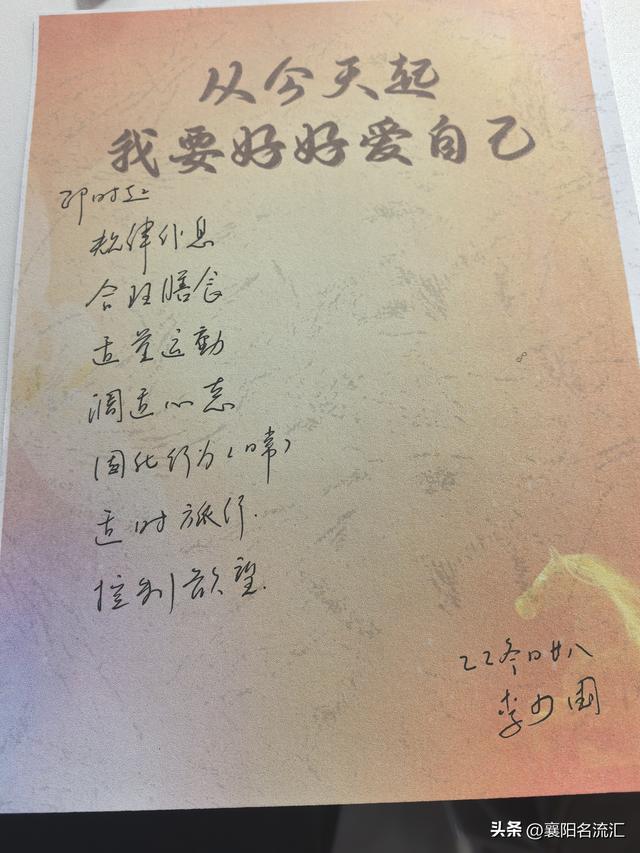 从今天起
我要好好爱自己
即时起
规律作息
合理膳食
适量运动
调适心态
固化行为（日常）
适时旅行.
控制欲望.
22冬日廿八
李少国
头条 @襄阳名流汇